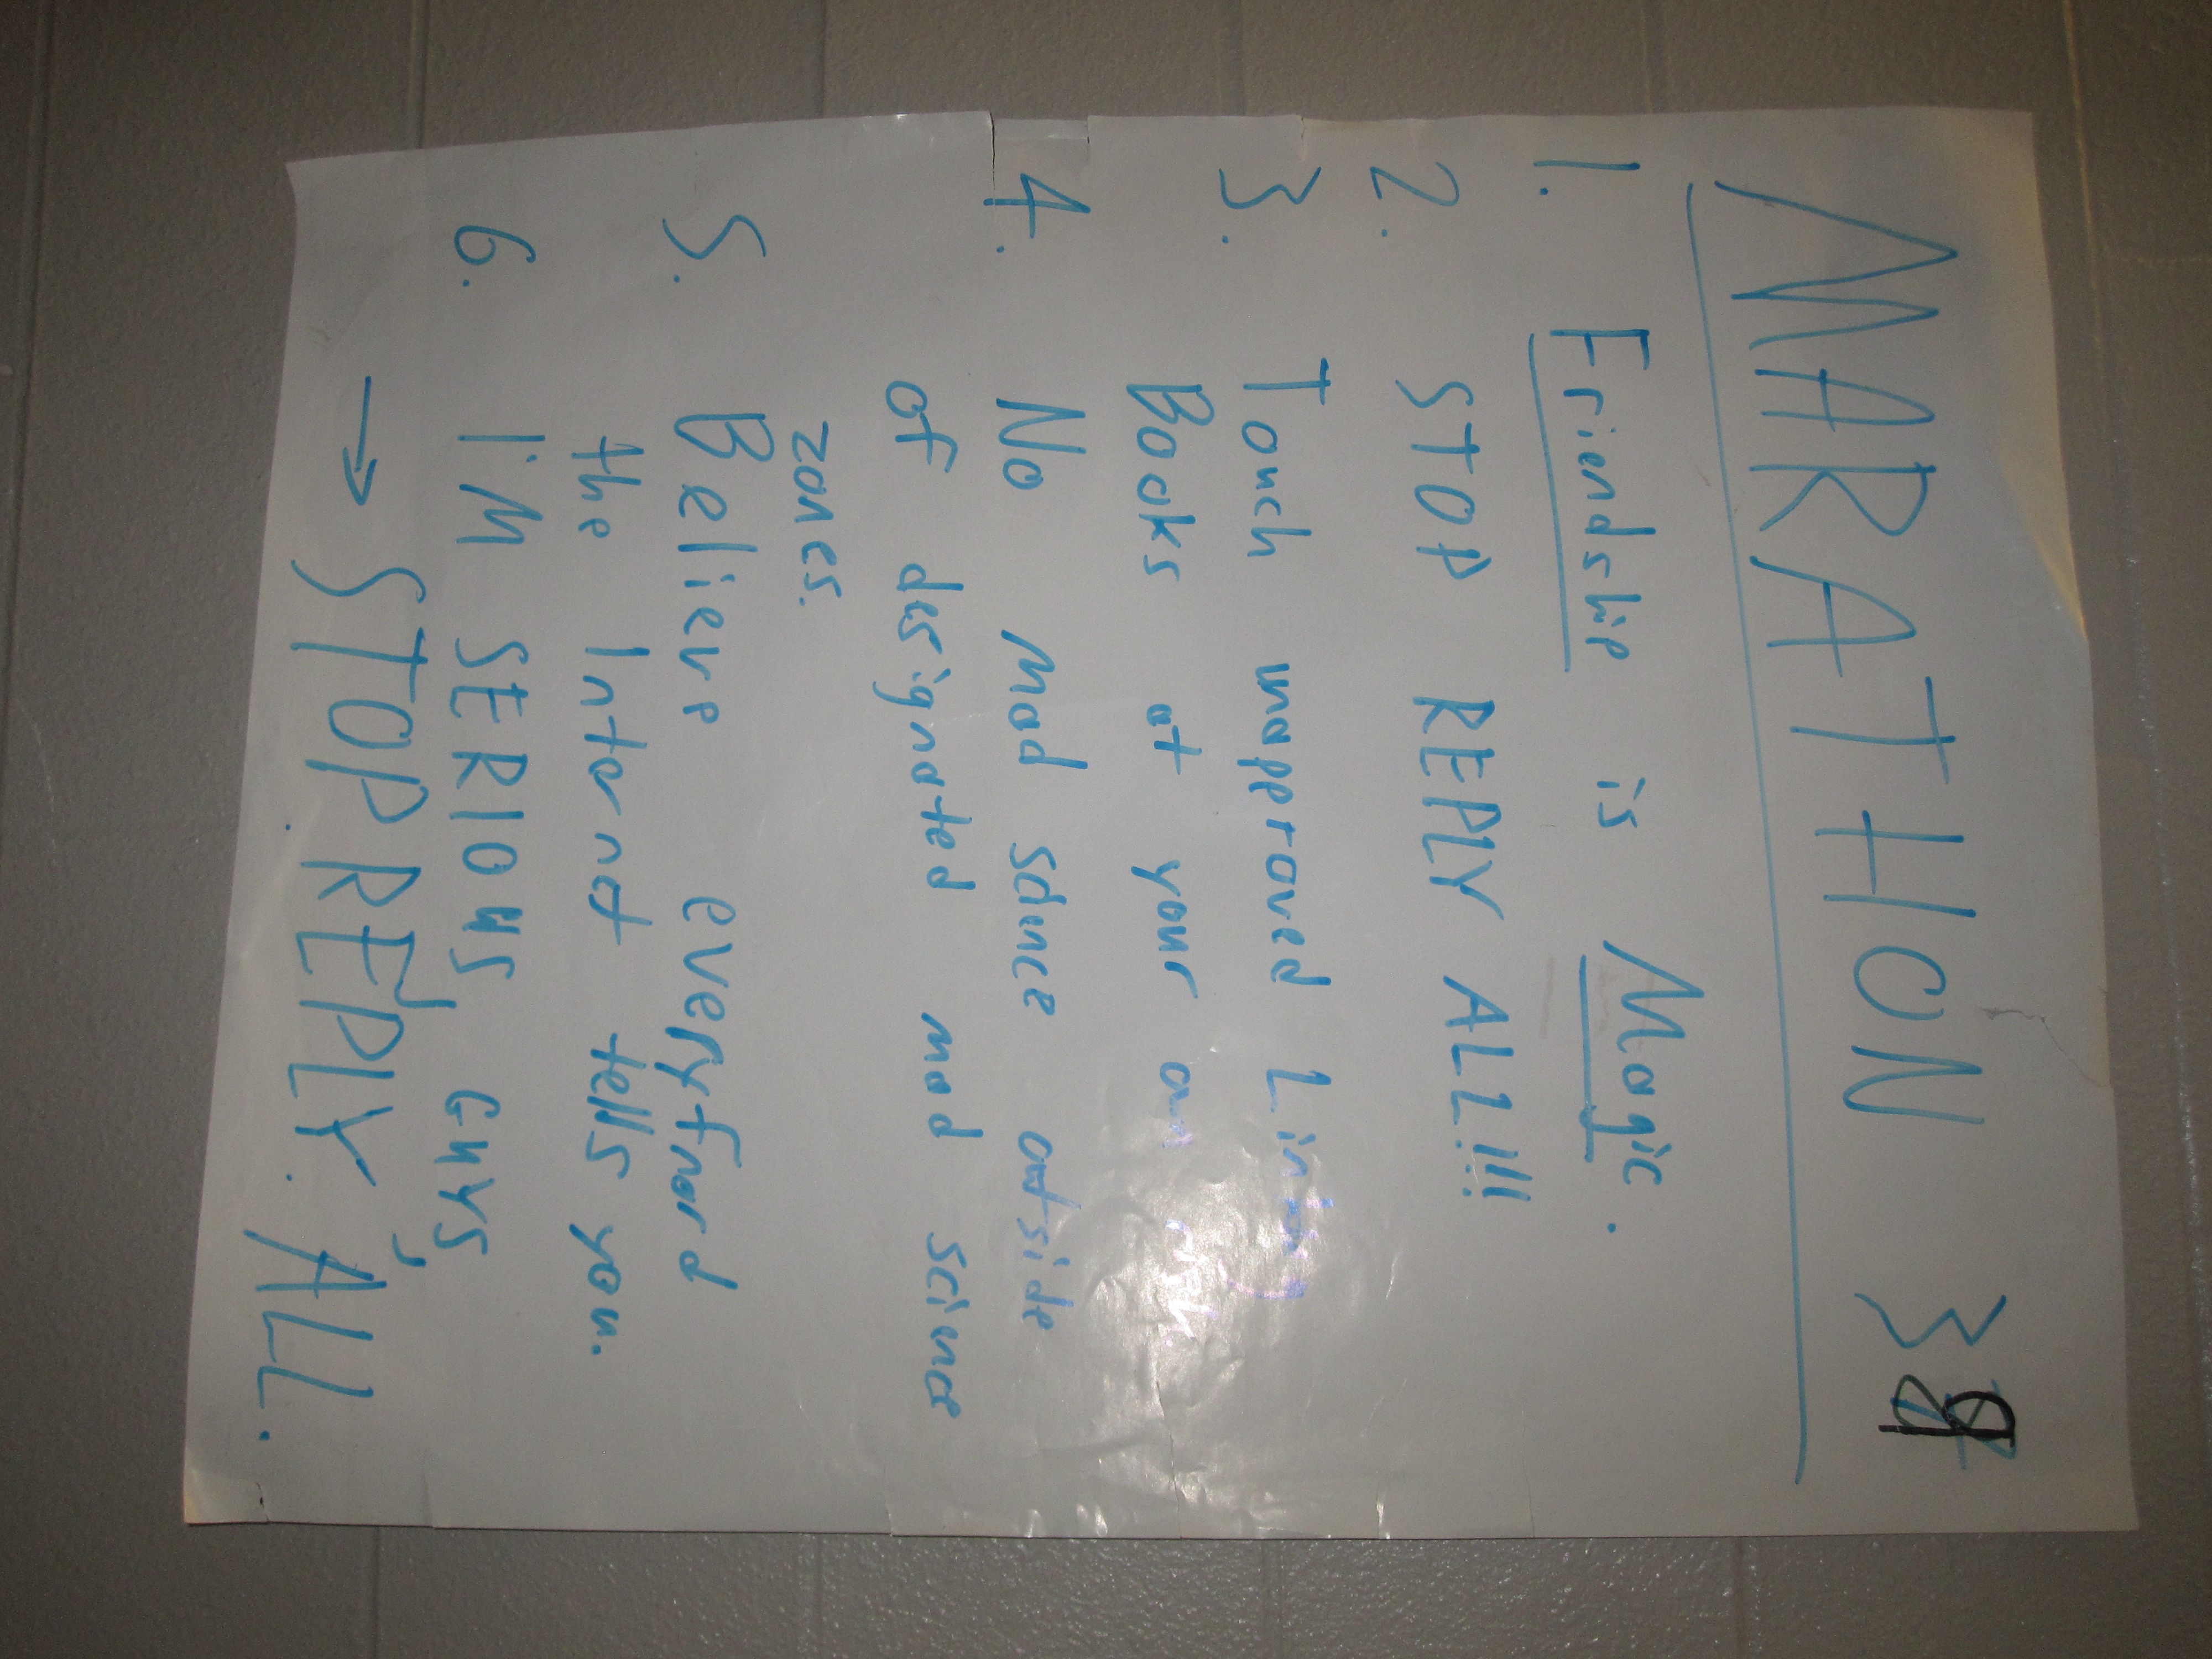 MARATHON 3
1. Friendship is Magic.
2. STOP REPLY ALL!!!
3. Touch unapproved
Books at your own risk
4. No mad science outside
of designated mad science
zones.
5. Believe everyfnord
the Internet tells you.
6. I'M SERIOUS, GUYS,
→ STOP REPLY ALL.